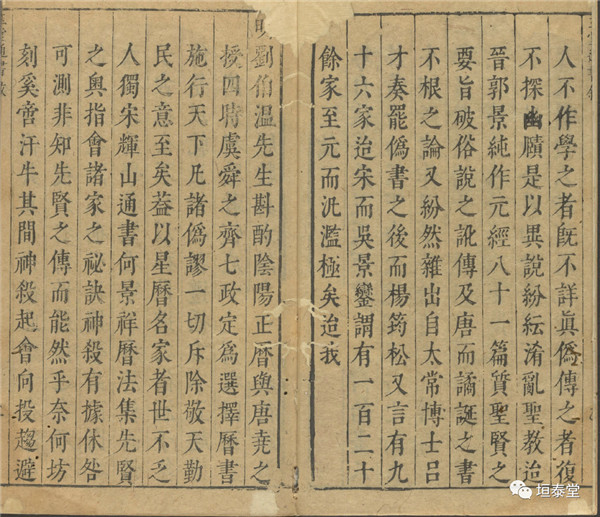 人不作學之者既不詳眞僞傳之者復
不探幽賾是以異說紛紜淆亂聖教迨
晉郭景純作元經八十一篇質聖賢之
要旨破俗說之訛傳及唐而譎誕之書
不根之論又紛然雜出自太常博士呂
才奏罷僞書之後而楊筠松又言有九
十六家迨宋而吳景鸞謂有一百二十
餘家至元而汎濫極矣迨我
明劉伯温先生斟酌陰陽正曆與唐堯之
授四時虞舜之齊七政定爲選擇曆書
施行天下凡諸僞謬一切斥除敬天勤
民之意至矣葢以星曆名家者世不乏
人獨宋輝山通書何景祥曆法集先賢
之奥指會諸家之秘訣神殺有據休咎
可測非知先賢之傳而能然乎奈何坊
刻奚啻汗牛其間神殺起會向投趨避
垣泰堂